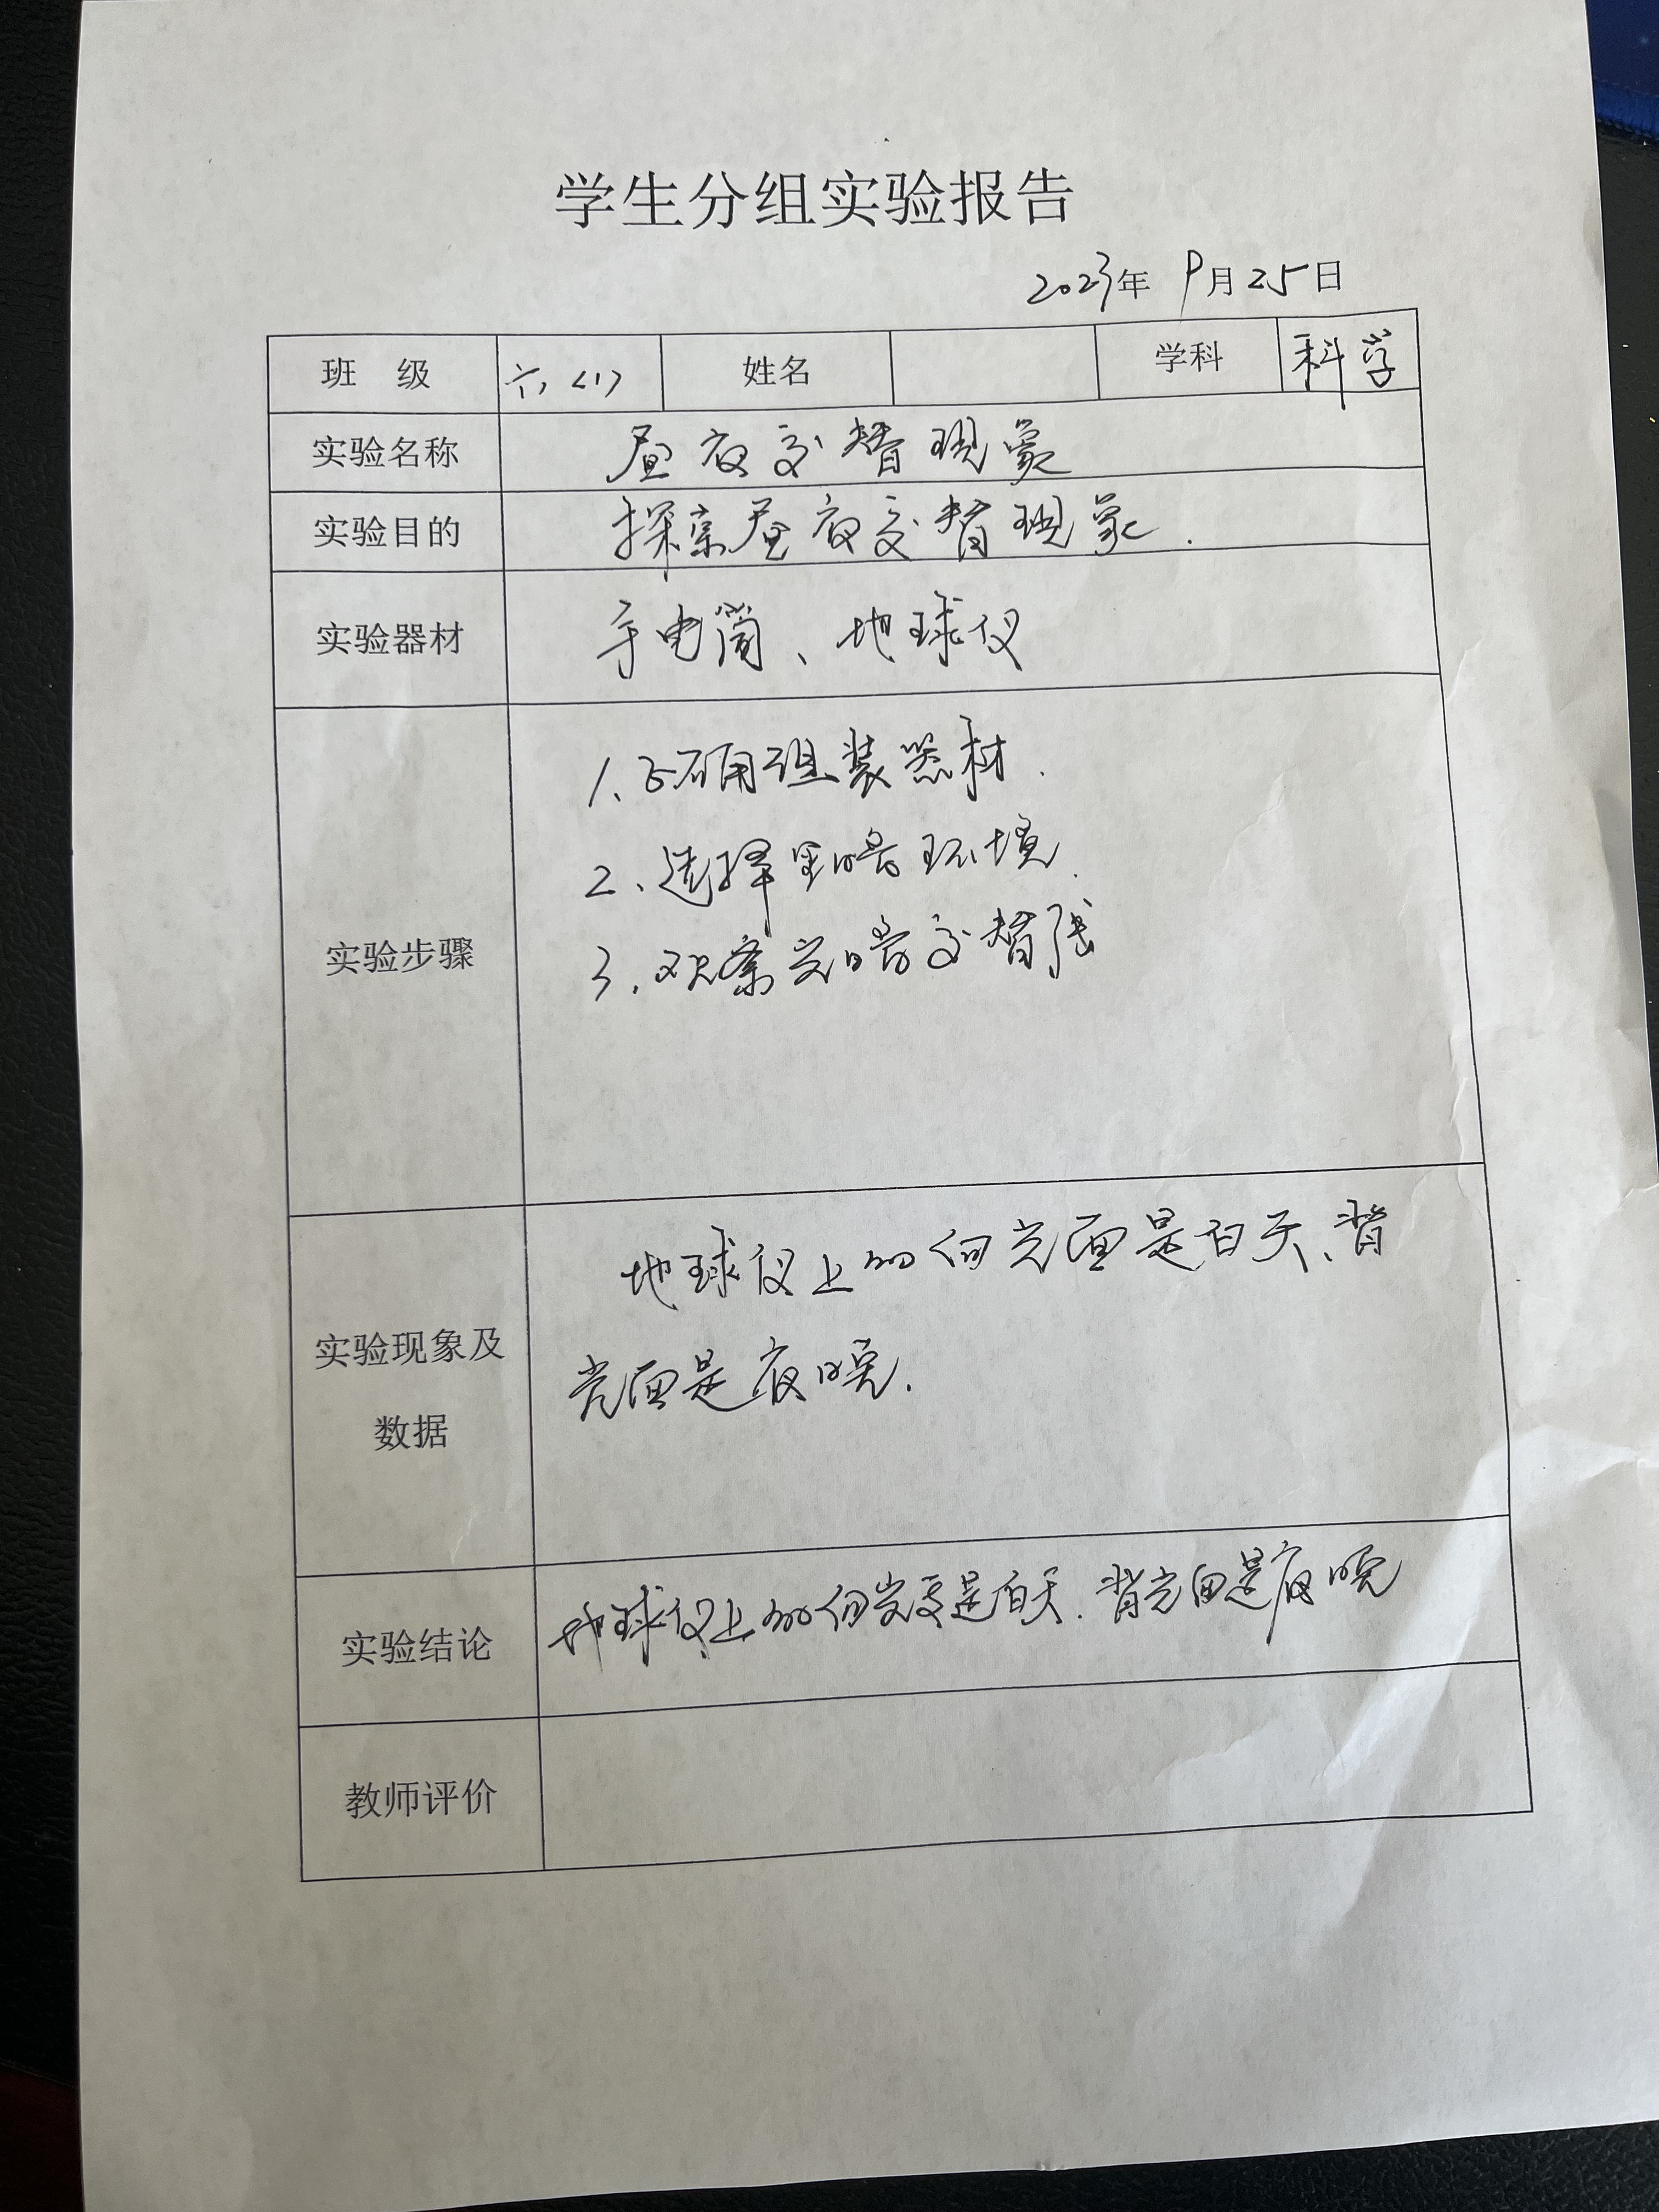 学生分组实验报告
2023年 9月25日
班 级 六(1) 姓名 学科 科学
实验名称 昼夜交替现象
实验目的 探索昼夜交替现象.
实验器材 手电筒、地球仪
实验步骤
1、正确组装器材.
2、选择黑暗环境.
3、观察交替
实验现象及
数据
地球仪上的向光面是白天、背
光面是夜晚.
实验结论 地球仪上的向光面是白天.背光面是夜晚
教师评价